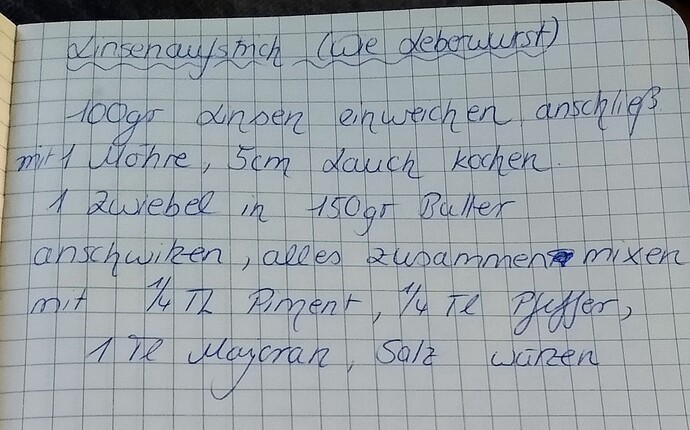 Linsenaufstrich (wie Leberwurst)
100gr Linsen einweichen anschließ
mit 1 Möhre, 5cm Lauch kochen.
1 Zwiebel in 150gr Butter
anschwitzen, alles zusammen mixen
mit 1/4 TL Piment, 1/4 TL Pfeffer,
1 TL Majoran, Salz würzen